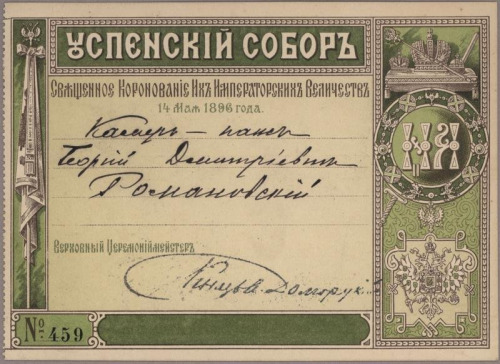 УСПЕНСКІЙ СОБОРЪ
СВЯЩЕННОЕ КОРОНОВАНІЕ ИХЪ ИМПЕРАТОРСКИХЪ ВЕЛИЧЕСТВЪ
14 МАЯ 1896 ГОДА.
Камеръ-пажъ
Георгій Дмитріевич
Романовскій
ВЕРХОВНЫЙ ЦЕРЕМОНІЙМЕЙСТЕРЪ
Князь Долгорукій
№ 459